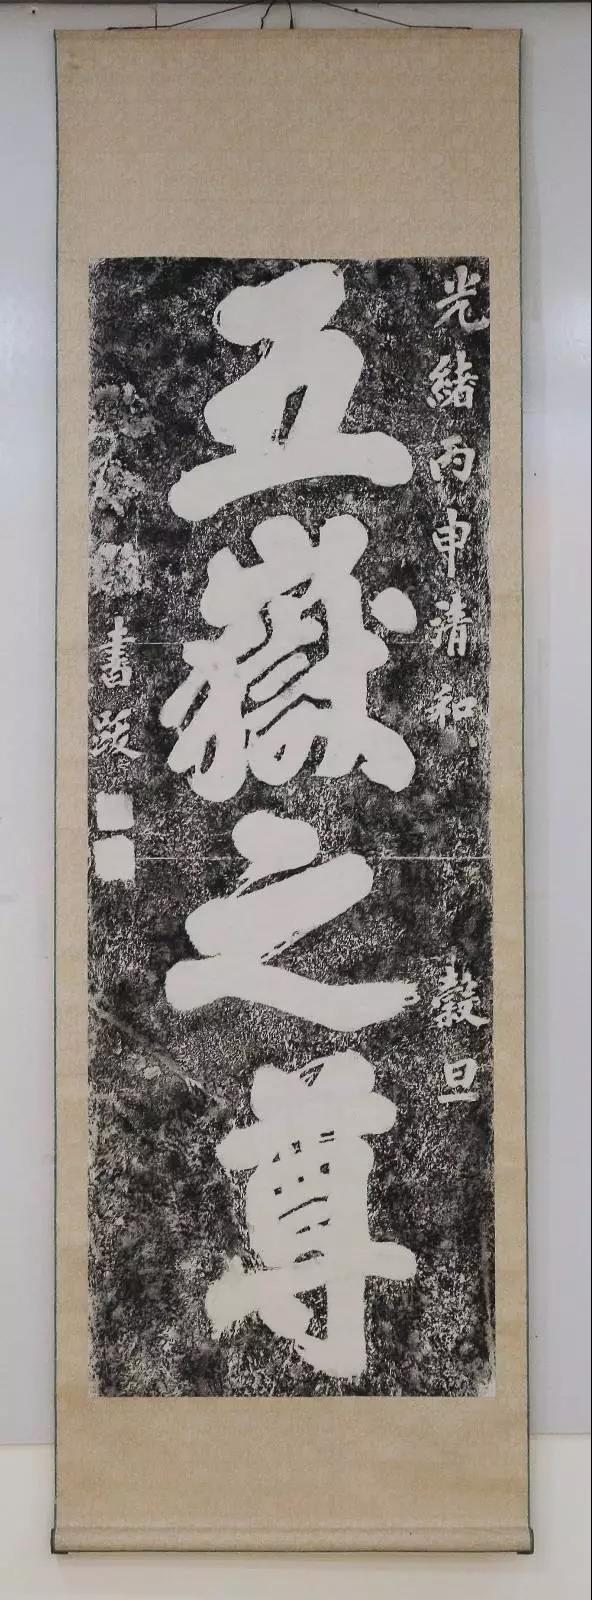 光緒丙申清和 穀旦
五嶽之尊
書跋